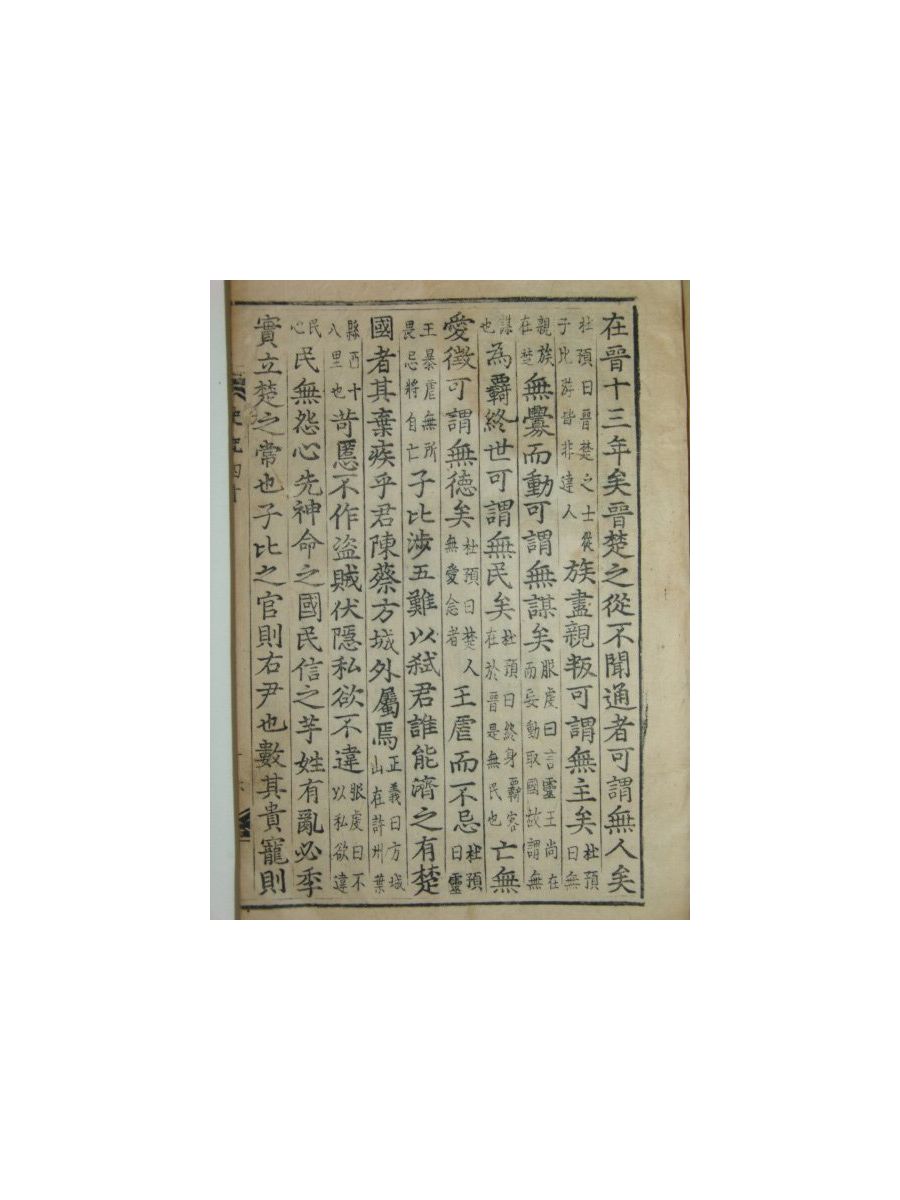 在晉十三年矣晉楚之從不聞通者可謂無人矣
杜預曰晉楚之士從子比游皆非達人族盡親叛可謂無主矣杜預曰無
親族在楚無釁而動可謂無謀矣服虔曰言靈王尚在而妄動取國故謂無
謀也為覊終世可謂無民矣杜預曰終身覊客在於晉是無民也亡無
愛徵可謂無徳矣杜預曰楚人無愛念者王虐而不忌杜預曰靈
王暴虐無所畏忌將自亡子比涉五難以弑君誰能濟之有楚
國者其棄疾乎君陳蔡方城外屬焉正義曰方城山在許州葉
縣西十八里也苛慝不作盗賊伏隱私欲不違服虔曰不以私欲違
民心民無怨心先神命之國民信之芋姓有亂必季
實立楚之常也子比之官則右尹也數其貴寵則